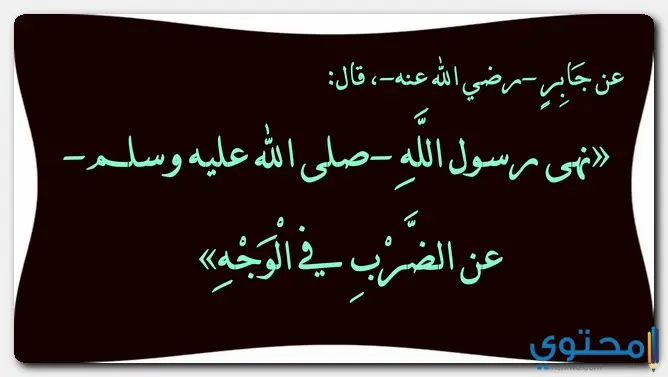 عن جَابِرٍ -رضي الله عنه-، قال:
«نهى رسول اللَّهِ -صلى الله عليه وسلم-
عن الضَّرْبِ في الْوَجْهِ»
محتوى